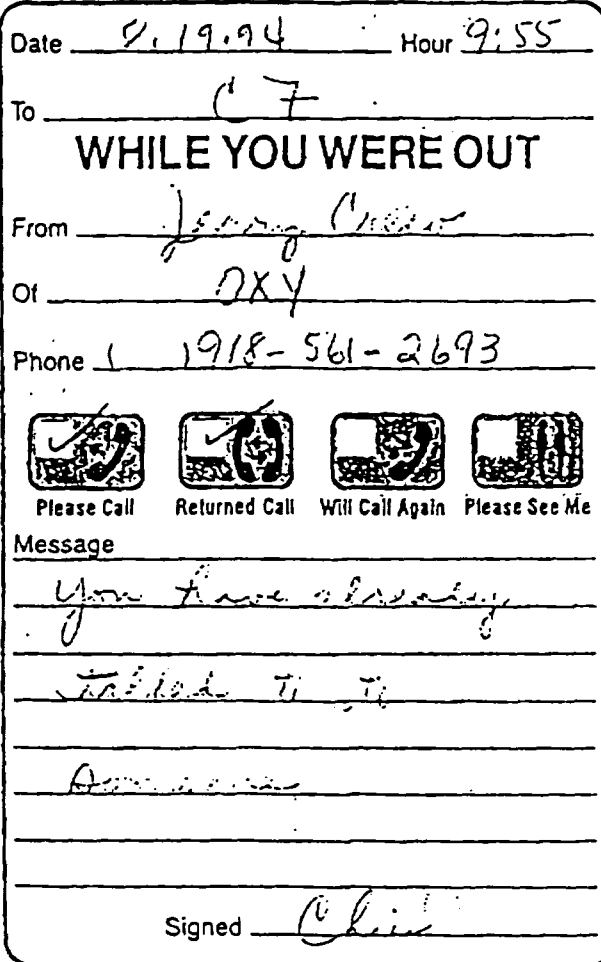 Date 9.19.94 Hour 9:55
To CF
WHILE YOU WERE OUT
From Jerry
Of OXY
Phone ( ) 918-561-2693
Please Call Returned Call Will Call Again Please See Me
Message
You have already
talked to
Signed